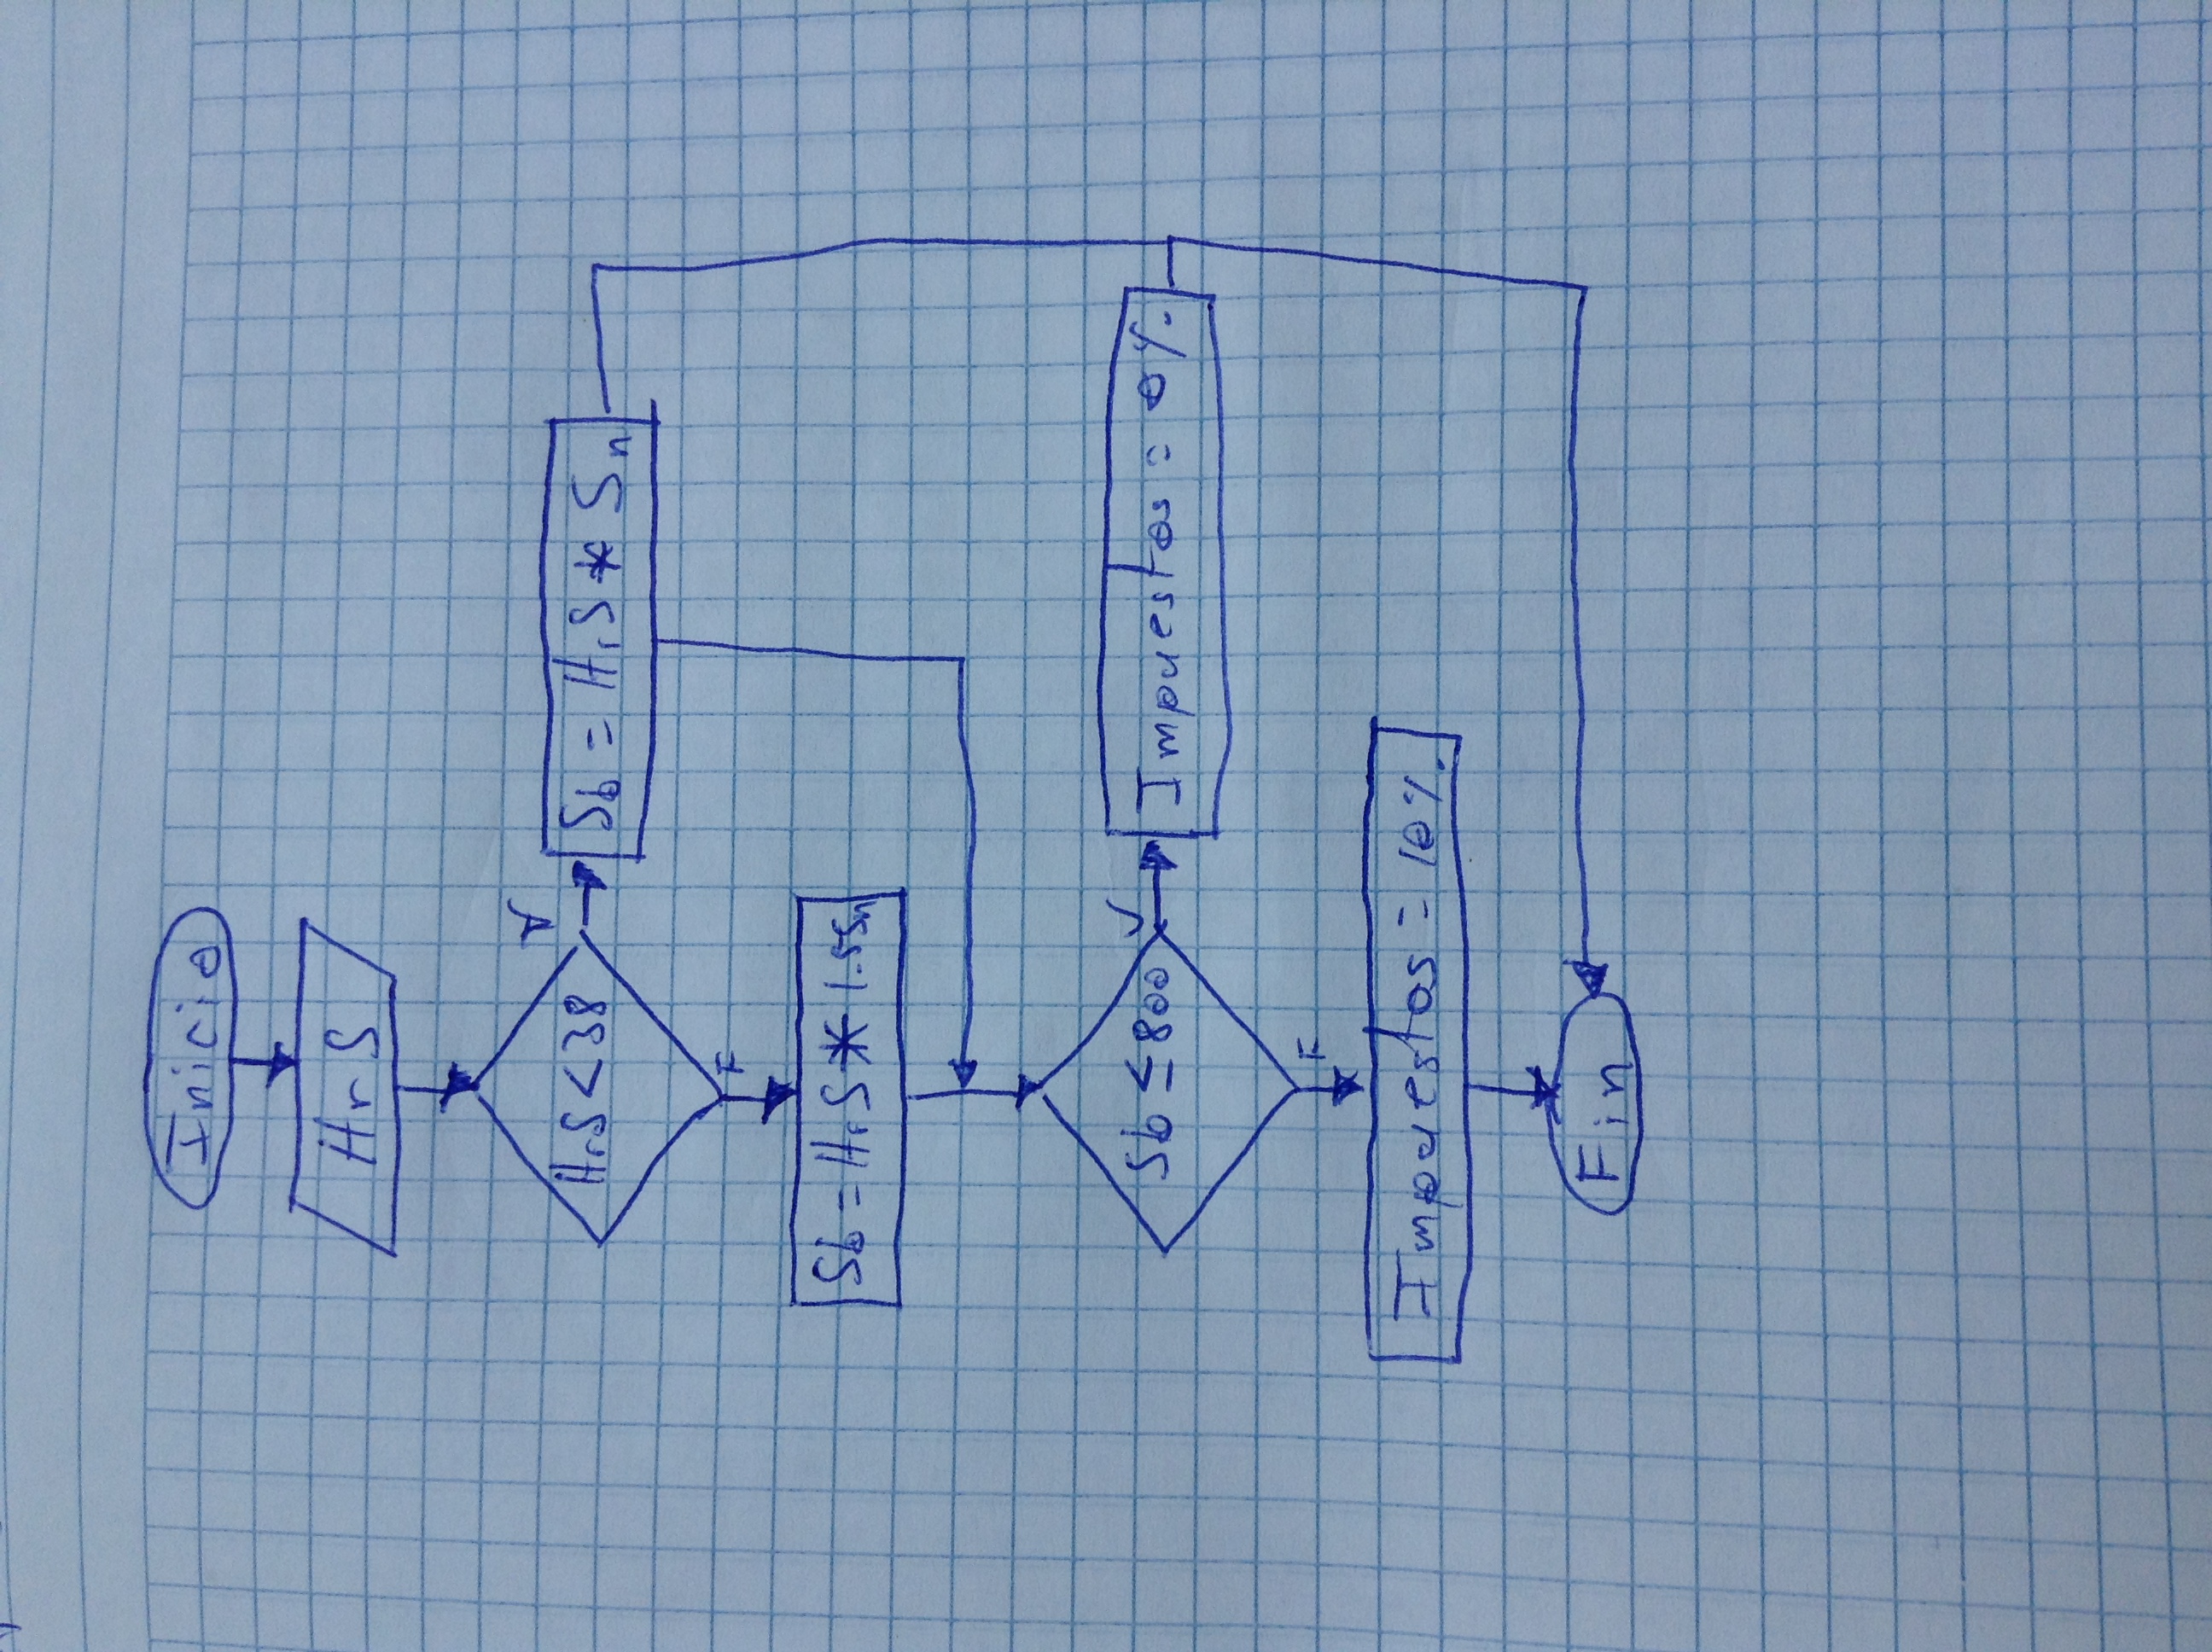 Inicio
Hr S
HrS<38
V
Sb = HrS * Sn
F
Sb = HrS * 1.5Sn
Sb ≤ 800
V
Impuestos = 0%
F
Impuestos = 10%
Fin